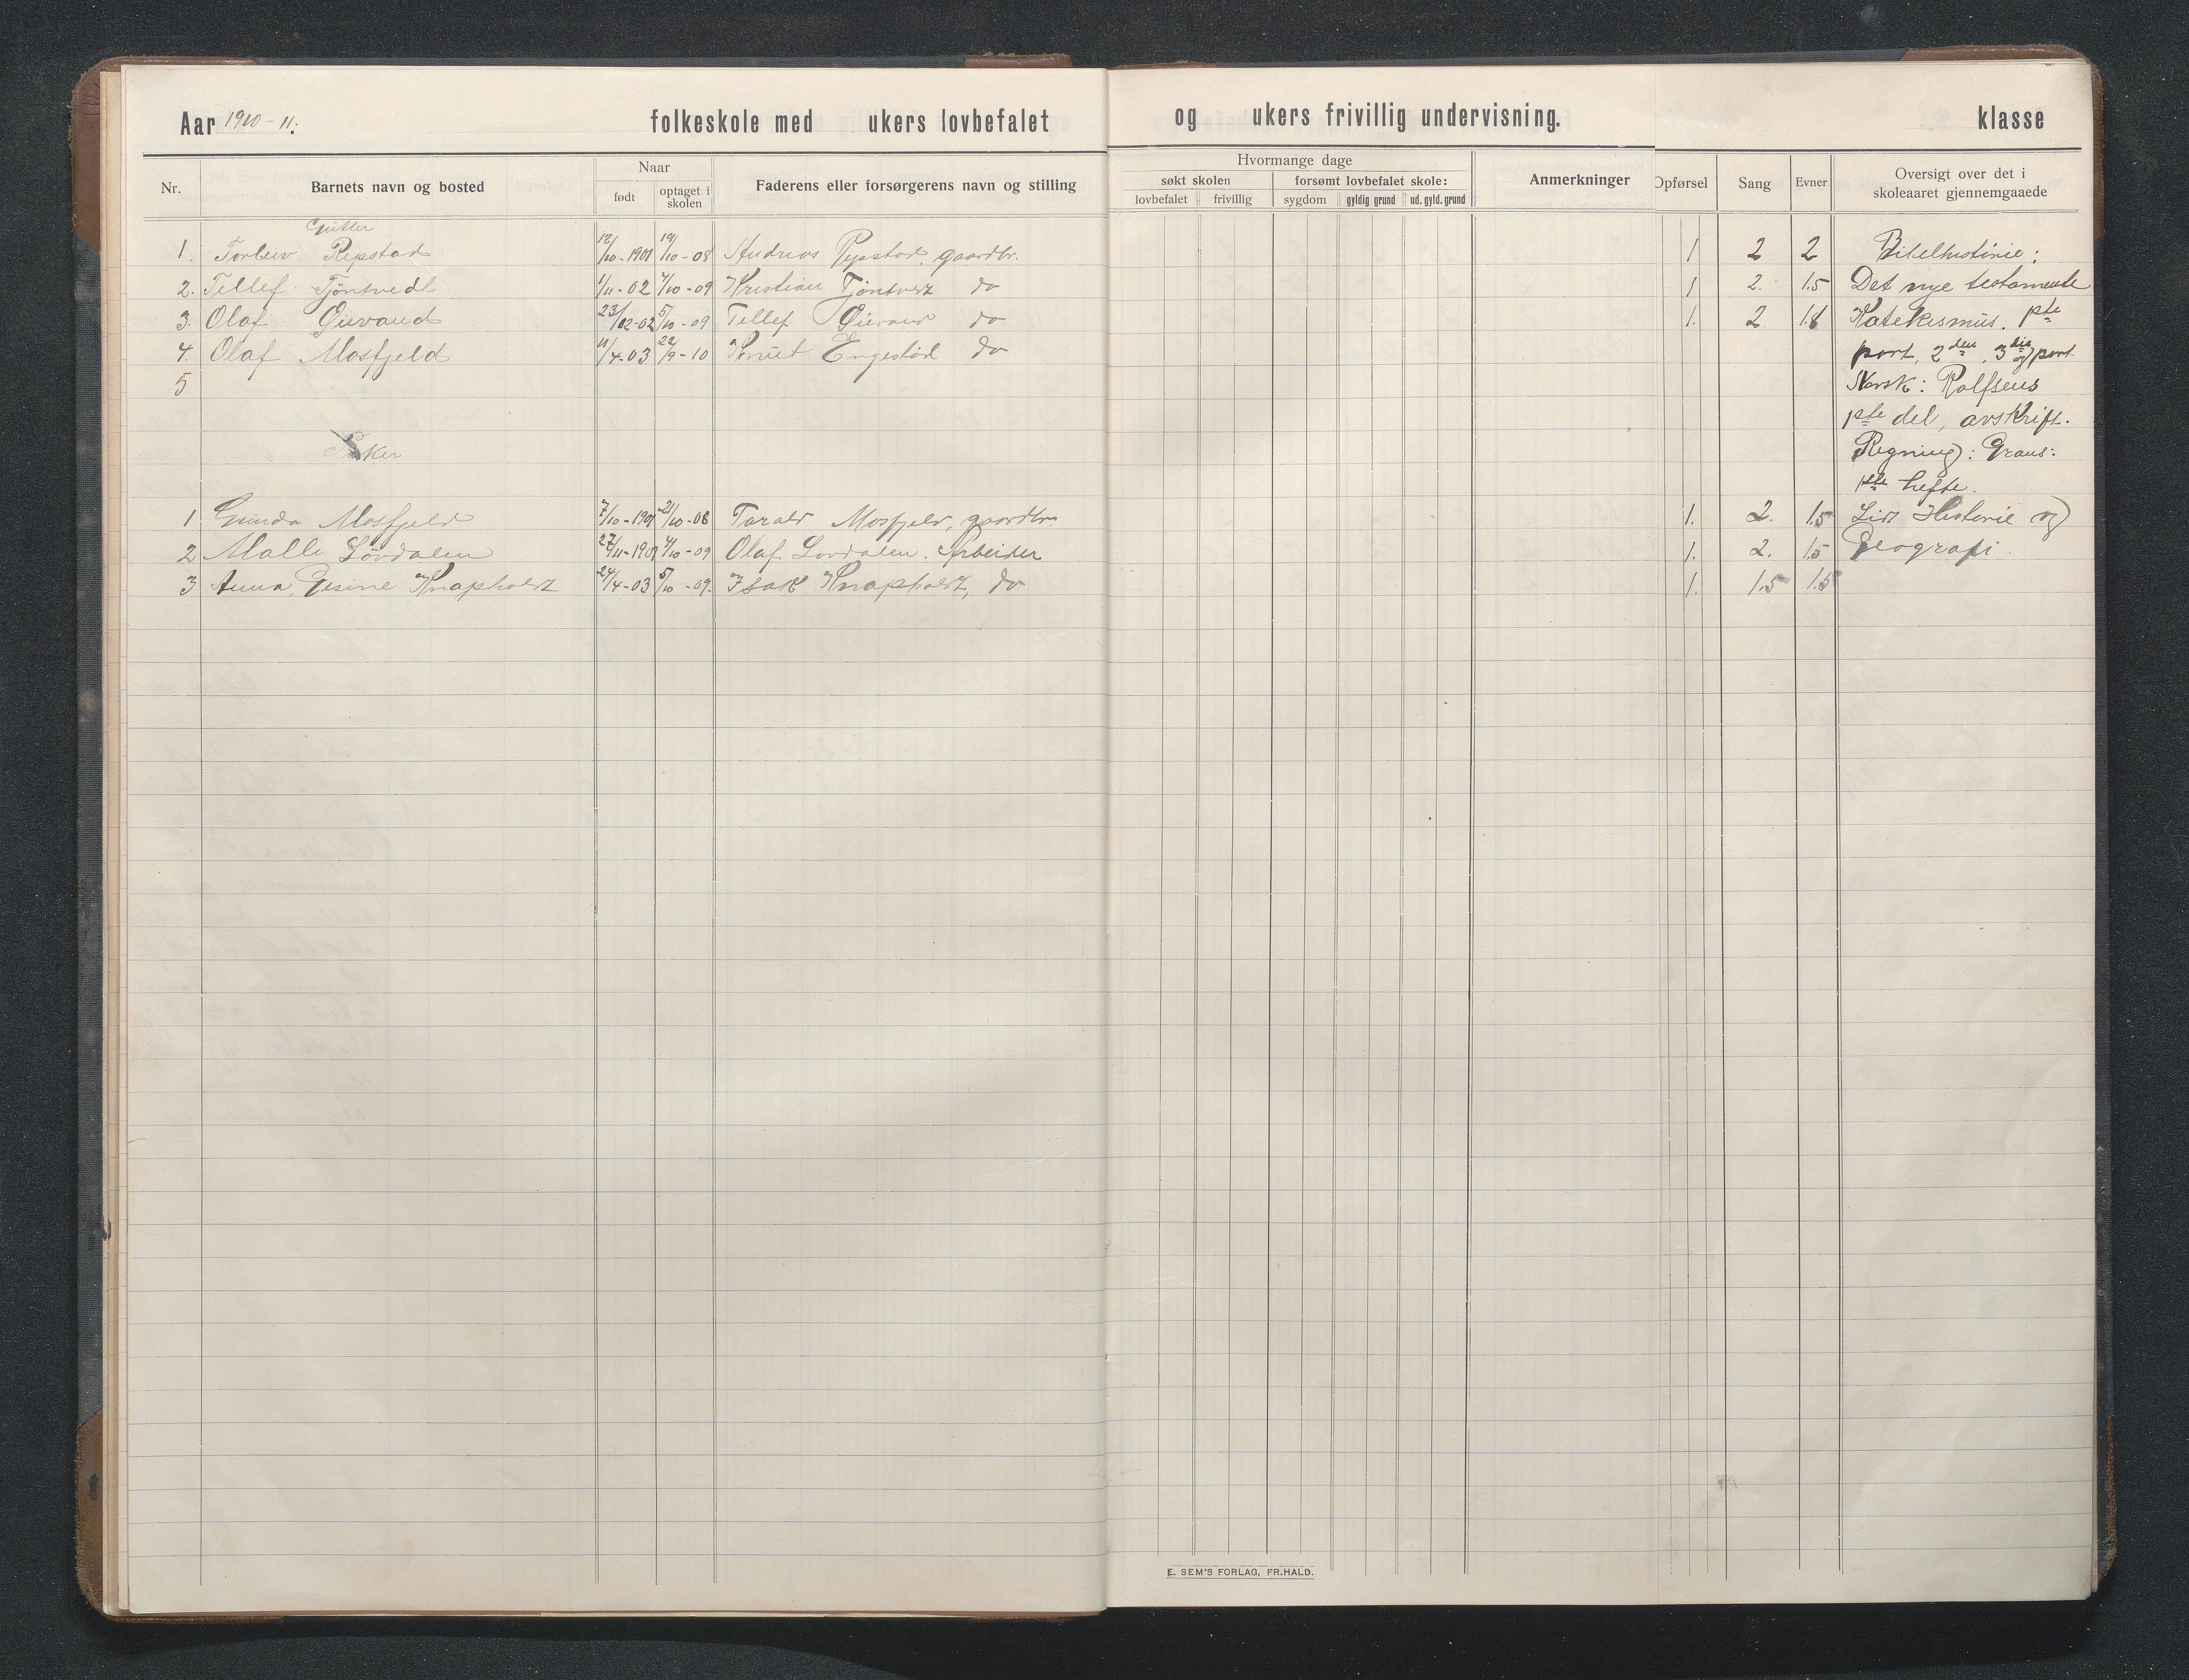 Aar 1910-11. folkeskole med ukers lovbefalet og ukers frivillig undervisning. klasse
Nr. Barnets navn og bosted Naar født optaget i skolen Faderens eller forsørgerens navn og stilling Hvormange dage søkt skolen lovbefalet frivillig forsømt lovbefalet skole: sygdom gyldig grund ud. gyld. grund Anmerkninger Opførsel Sang Evner Oversigt over det i skoleaaret gjennemgaaede
Gutter
1. Torleiv Repstad 12/10-1901 19/10-08 Andreas Repstad, gaardbr. 1 2 2 Bibelhistorie:
2. Tellef Tjøntvedt 1/11-02 4/10-09 Kristian Tjøntvedt do 1 2. 1.5 Det nye testamente
3. Olaf Øievand 23/12-02 5/10-09 Tellef Øievand do 1. 2 1.8 Katekismus. 1ste
4. Olaf Mosfjeld 11/4-03 22/9-10 Knut Engestøl do part, 2den, 3die og part
5 Norsk: Rolfsens
1ste del, avskrift.
Piker Regning: Grans:
1ste hefte.
1 Gunda Mosfjeld 7/10-1901 21/10-08 Tarald Mosfjeld, gaardbr. 1. 2. 1.5 Lidt Historie og
2 Malli Løvdalen 27/11-1901 4/10-09 Olaf Løvdalen. Arbeider 1. 2. 1.5 Geografi.
3 Anna Gesine Knapholdt 24/4-03 5/10-09. Isak Knapholdt, do 1. 1.5 1.5
E. SEM'S FORLAG, FR.HALD.